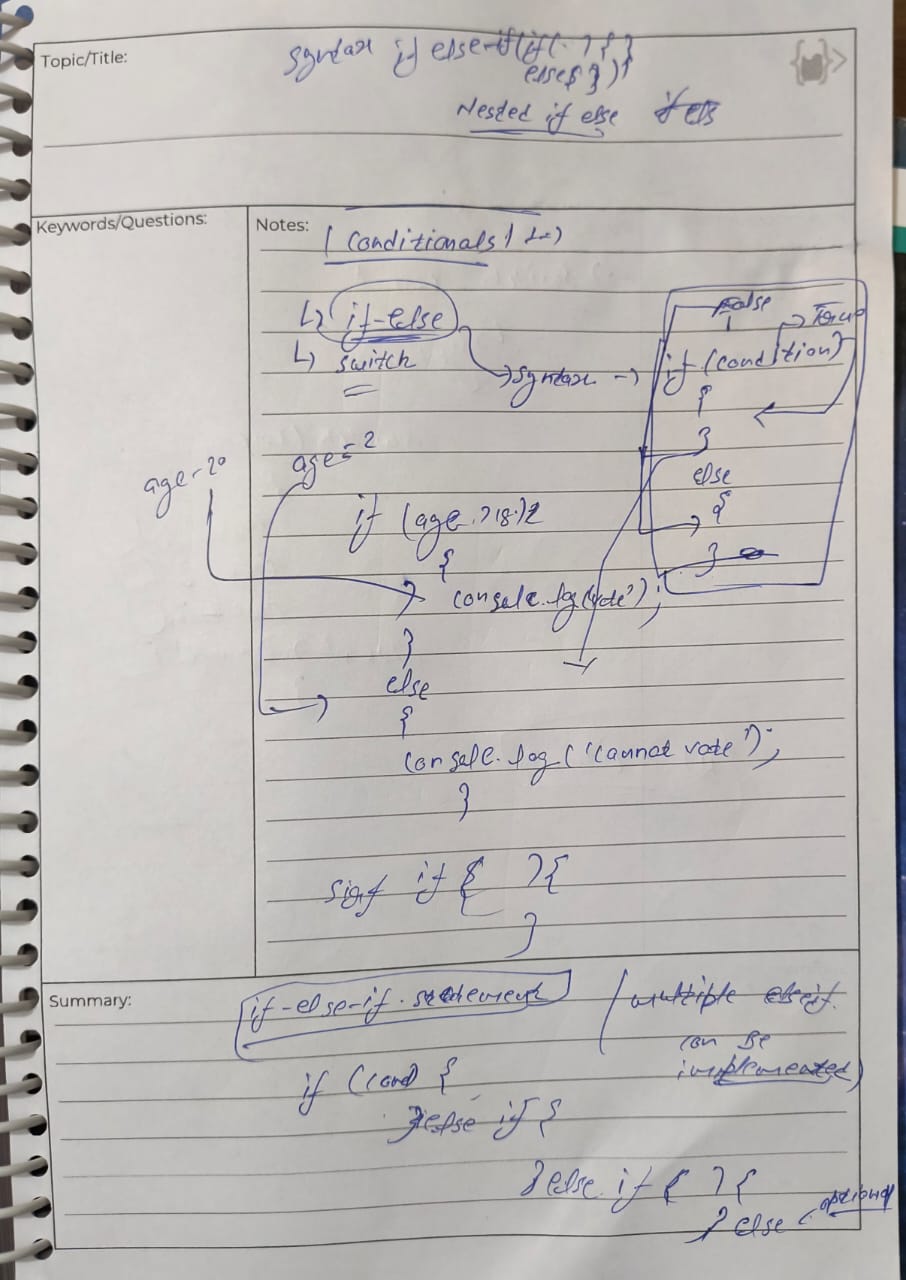 Topic/Title:
Syntax if else if(if(. ) { }
else { } )}
Nested if else
Keywords/Questions:
Notes:
(Conditionals)
↳ if-else
↳ switch
→ syntax →
False
→ True
if (condition)
{
}
else
{
}
age = 20
age = 2
if (age > 18)
{
console.log("vote");
}
else
{
console.log("cannot vote");
}
if ( ) {
}
Summary:
if-else-if statement
(multiple else if
can be
implemented)
if (cond {
}else if {
}else if ( ) {
} else
optional